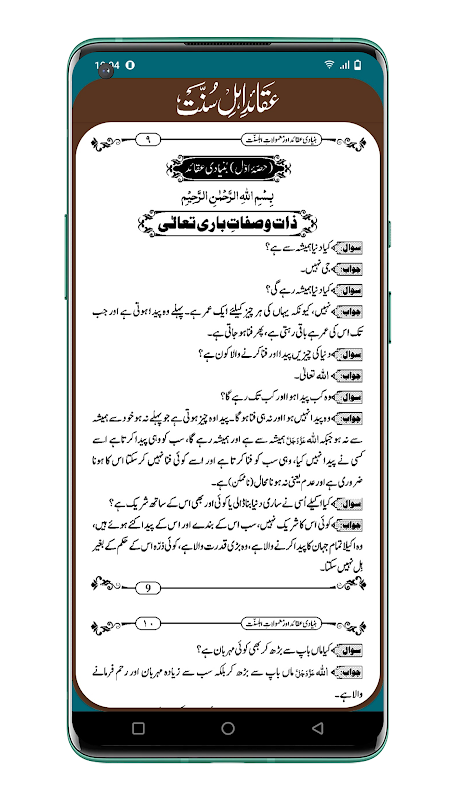 عقائدِ اہلِ سُنّت
بنیادی عقائد اور معمولاتِ اہلسنّت
۹
(حصّۂ اوّل) بنیادی عقائد
بِسْمِ اللّٰهِ الرَّحْمٰنِ الرَّحِيْمِ
ذات و صفاتِ باری تعالٰی
سوال: کیا دنیا ہمیشہ سے ہے؟
جواب: جی نہیں۔
سوال: کیا دنیا ہمیشہ رہے گی؟
جواب: نہیں، کیونکہ یہاں کی ہر چیز کیلئے ایک عمر ہے۔ پہلے وہ پیدا ہوتی ہے اور جب
تک اس کی عمر ہے باقی رہتی ہے، پھر فنا ہو جاتی ہے۔
سوال: دنیا کی چیزیں پیدا اور فنا کرنے والا کون ہے؟
جواب: اللہ تعالٰی۔
سوال: وہ کب پیدا ہوا اور کب تک رہے گا؟
جواب: وہ پیدا نہیں ہوا اور نہ ہی فنا ہو گا۔ پیدا وہ چیز ہوتی ہے جو پہلے نہ ہو خود سے ہمیشہ
سے نہ ہو جبکہ اللہ عَزَّوَجَلَّ ہمیشہ سے ہے اور ہمیشہ رہے گا، سب کو وہی پیدا کرتا ہے اسے
کسی نے پیدا نہیں کیا، وہی سب کو فنا کرتا ہے اور اسے کوئی فنا نہیں کر سکتا اس کا ہونا
ضروری ہے اور عدم یعنی نہ ہونا محال (ناممکن) ہے۔
سوال: کیا اکیلے اُسی نے ساری دنیا بنا ڈالی یا کوئی اور بھی اس کے ساتھ شریک ہے؟
جواب: کوئی اس کا شریک نہیں، سب اس کے بندے اور اس کے پیدا کئے ہوئے ہیں،
وہ اکیلا تمام جہان کا پیدا کرنے والا ہے، وہ بڑی قدرت والا ہے، کوئی ذرّہ اس کے حکم کے بغیر
ہل نہیں سکتا۔
9
بنیادی عقائد اور معمولاتِ اہلسنّت
۱۰
سوال: کیا ماں باپ سے بڑھ کر بھی کوئی مہربان ہے؟
جواب: اللہ عَزَّوَجَلَّ ماں باپ سے بڑھ کر بلکہ سب سے زیادہ مہربان اور رحم فرمانے
والا ہے۔